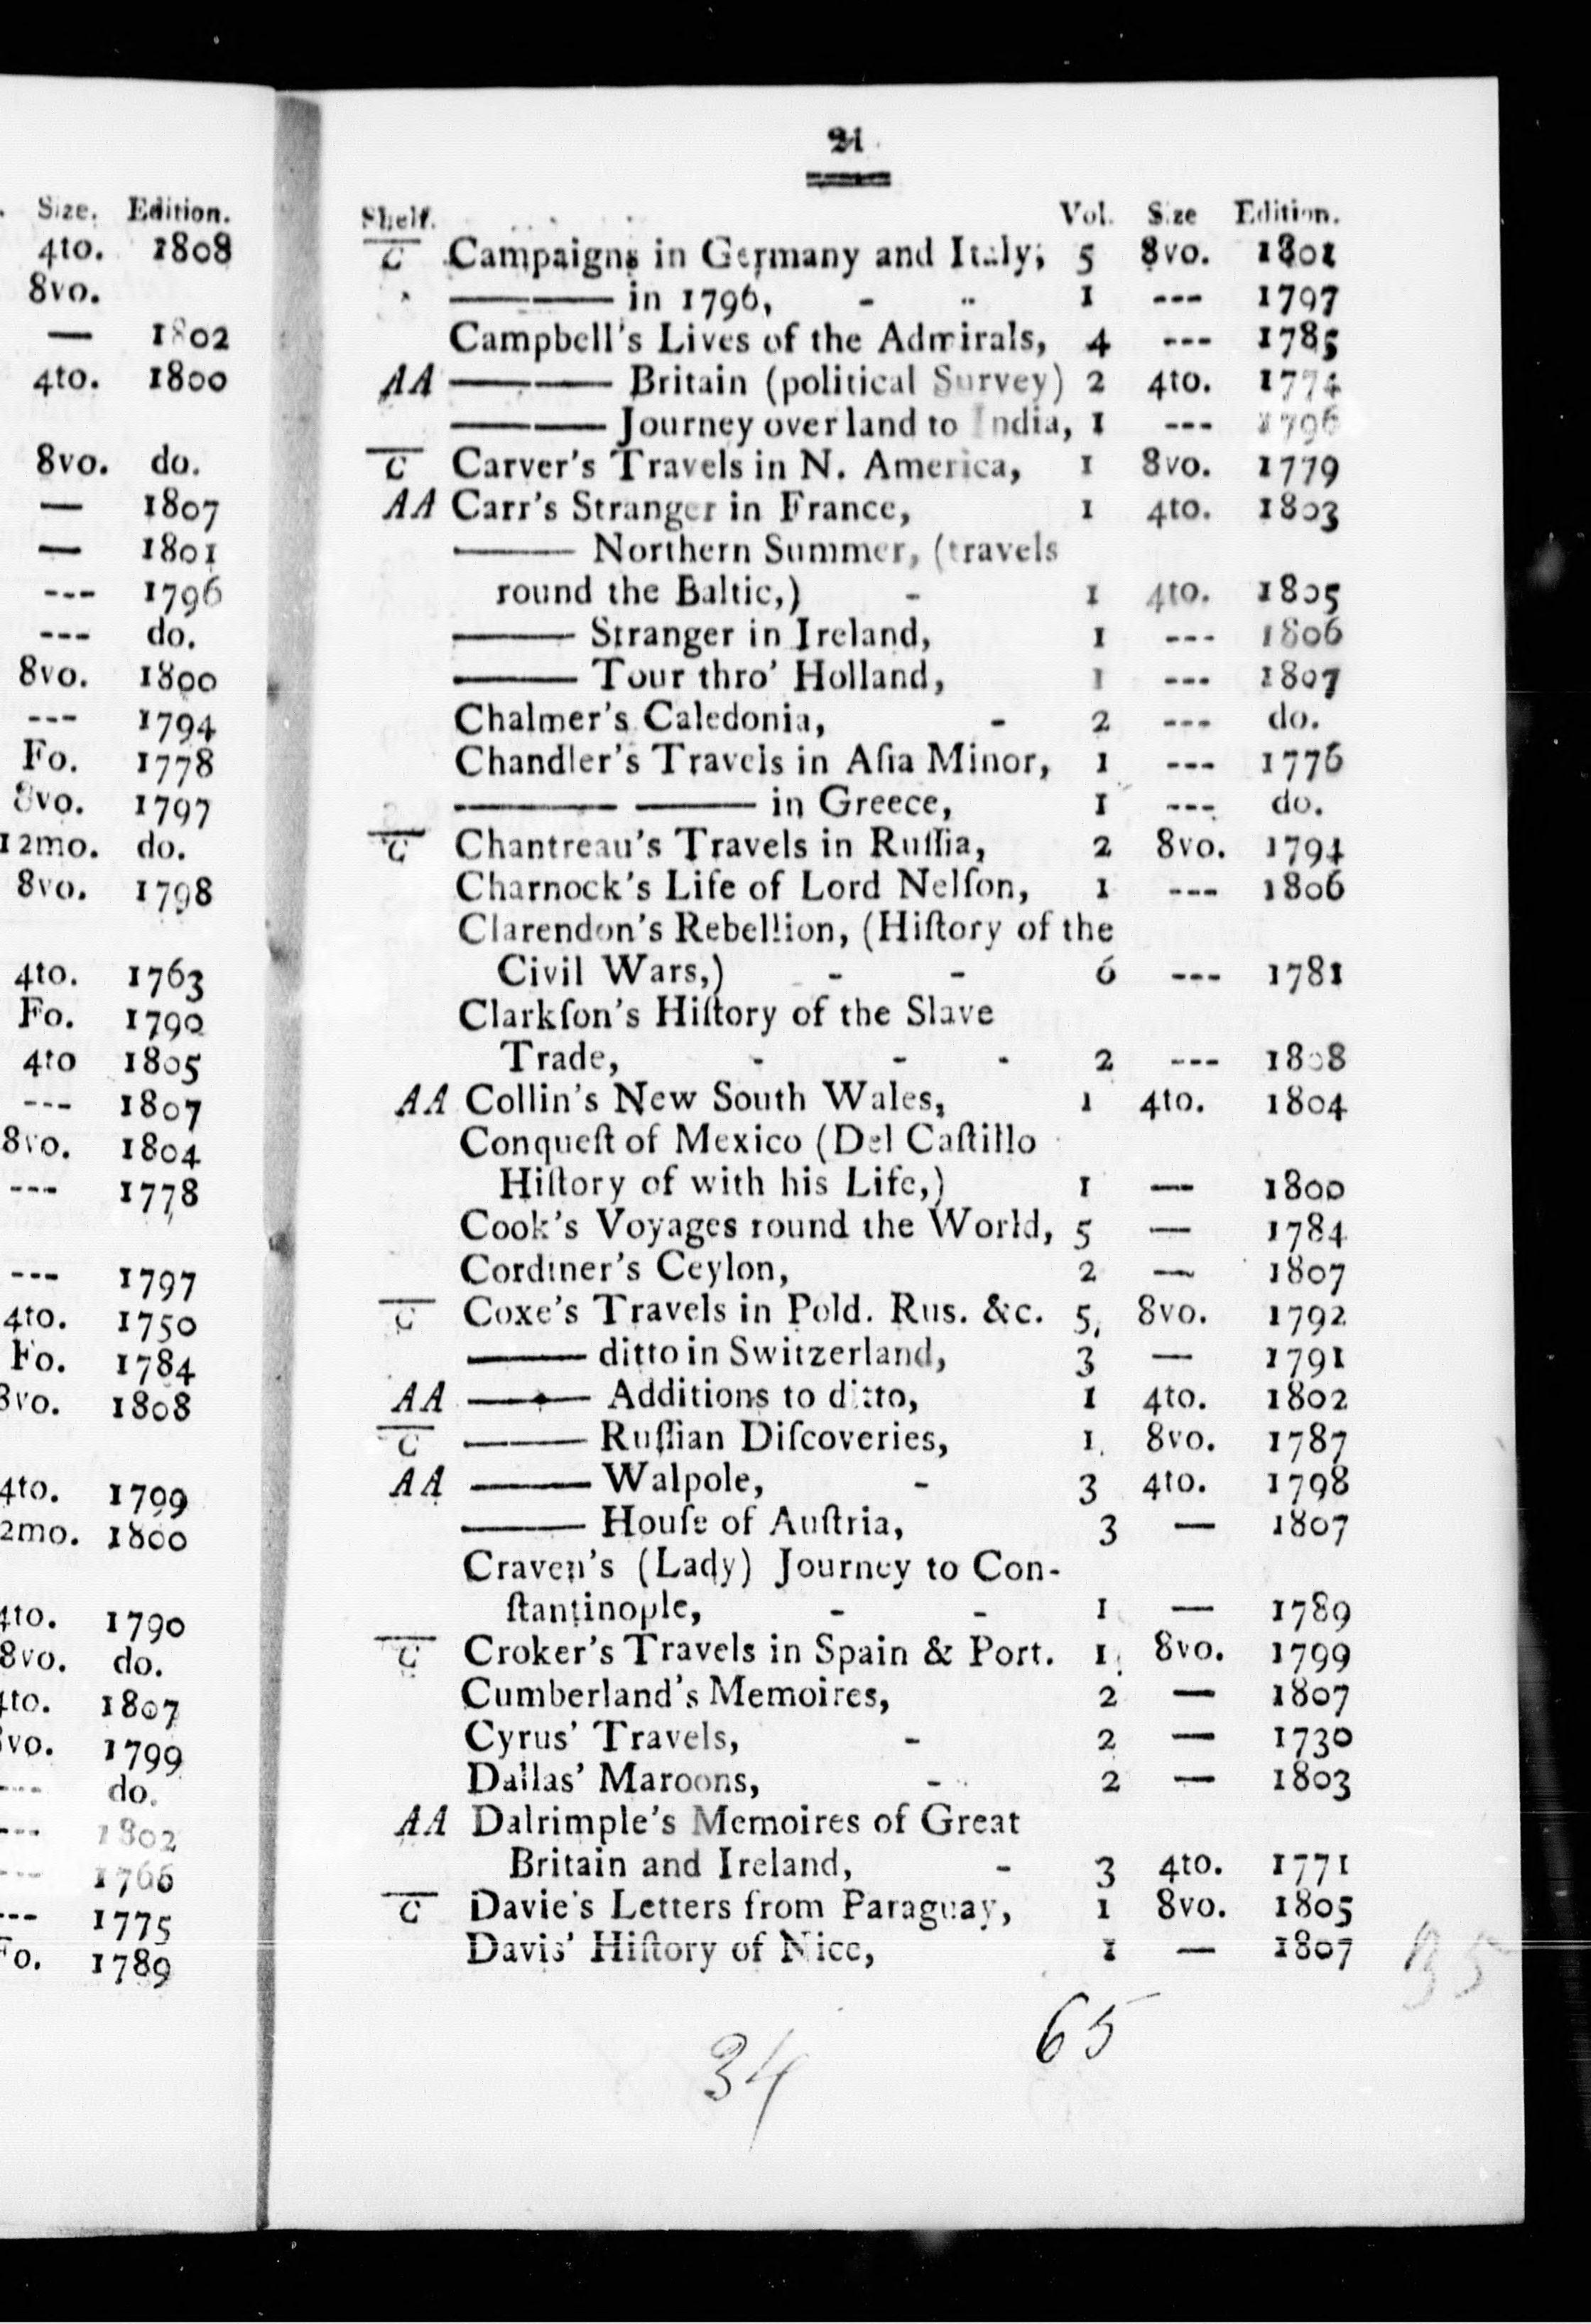 Size. Edition.
4to. 1808
8vo.
— 1802
4to. 1800
8vo. do.
— 1807
— 1801
--- 1796
--- do.
8vo. 1800
--- 1794
Fo. 1778
8vo. 1797
12mo. do.
8vo. 1798
4to. 1763
Fo. 1790
4to 1805
--- 1807
8vo. 1804
--- 1778
--- 1797
4to. 1750
Fo. 1784
8vo. 1808
4to. 1799
2mo. 1800
4to. 1790
8vo. do.
4to. 1807
vo. 1799
--- do.
--- 1802
--- 1766
--- 1775
Fo. 1789
21
Shelf. Vol. Size Edition.
C Campaigns in Germany and Italy; 5 8vo. 1801
—— in 1796, - - 1 --- 1797
Campbell's Lives of the Admirals, 4 --- 1785
AA —— Britain (political Survey) 2 4to. 1774
—— Journey over land to India, 1 --- 1796
C Carver's Travels in N. America, 1 8vo. 1779
AA Carr's Stranger in France, 1 4to. 1803
—— Northern Summer, (travels
round the Baltic,) - 1 4to. 1805
—— Stranger in Ireland, 1 --- 1806
—— Tour thro' Holland, 1 --- 1807
Chalmer's Caledonia, - 2 --- do.
Chandler's Travels in Aſia Minor, 1 --- 1776
—— —— in Greece, 1 --- do.
C Chantreau's Travels in Ruſſia, 2 8vo. 1794
Charnock's Life of Lord Nelſon, 1 --- 1806
Clarendon's Rebellion, (Hiſtory of the
Civil Wars,) - - 6 --- 1781
Clarkſon's Hiſtory of the Slave
Trade, - - - 2 --- 1808
AA Collin's New South Wales, 1 4to. 1804
Conqueſt of Mexico (Del Caſtillo
Hiſtory of with his Life,) 1 — 1800
Cook's Voyages round the World, 5 — 1784
Cordiner's Ceylon, 2 — 1807
C Coxe's Travels in Pold. Rus. &c. 5, 8vo. 1792
—— ditto in Switzerland, 3 — 1791
AA —— Additions to ditto, 1 4to. 1802
C —— Ruſſian Diſcoveries, 1. 8vo. 1787
AA —— Walpole, - 3 4to. 1798
—— Houſe of Auſtria, 3 — 1807
Craven's (Lady) Journey to Con-
ſtantinople, - - 1 — 1789
C Croker's Travels in Spain & Port. 1 8vo. 1799
Cumberland's Memoires, 2 — 1807
Cyrus' Travels, - 2 — 1730
Dallas' Maroons, - 2 — 1803
AA Dalrimple's Memoires of Great
Britain and Ireland, - 3 4to. 1771
C Davie's Letters from Paraguay, 1 8vo. 1805
Davis' Hiſtory of Nice, 1 — 1807
35
65
34